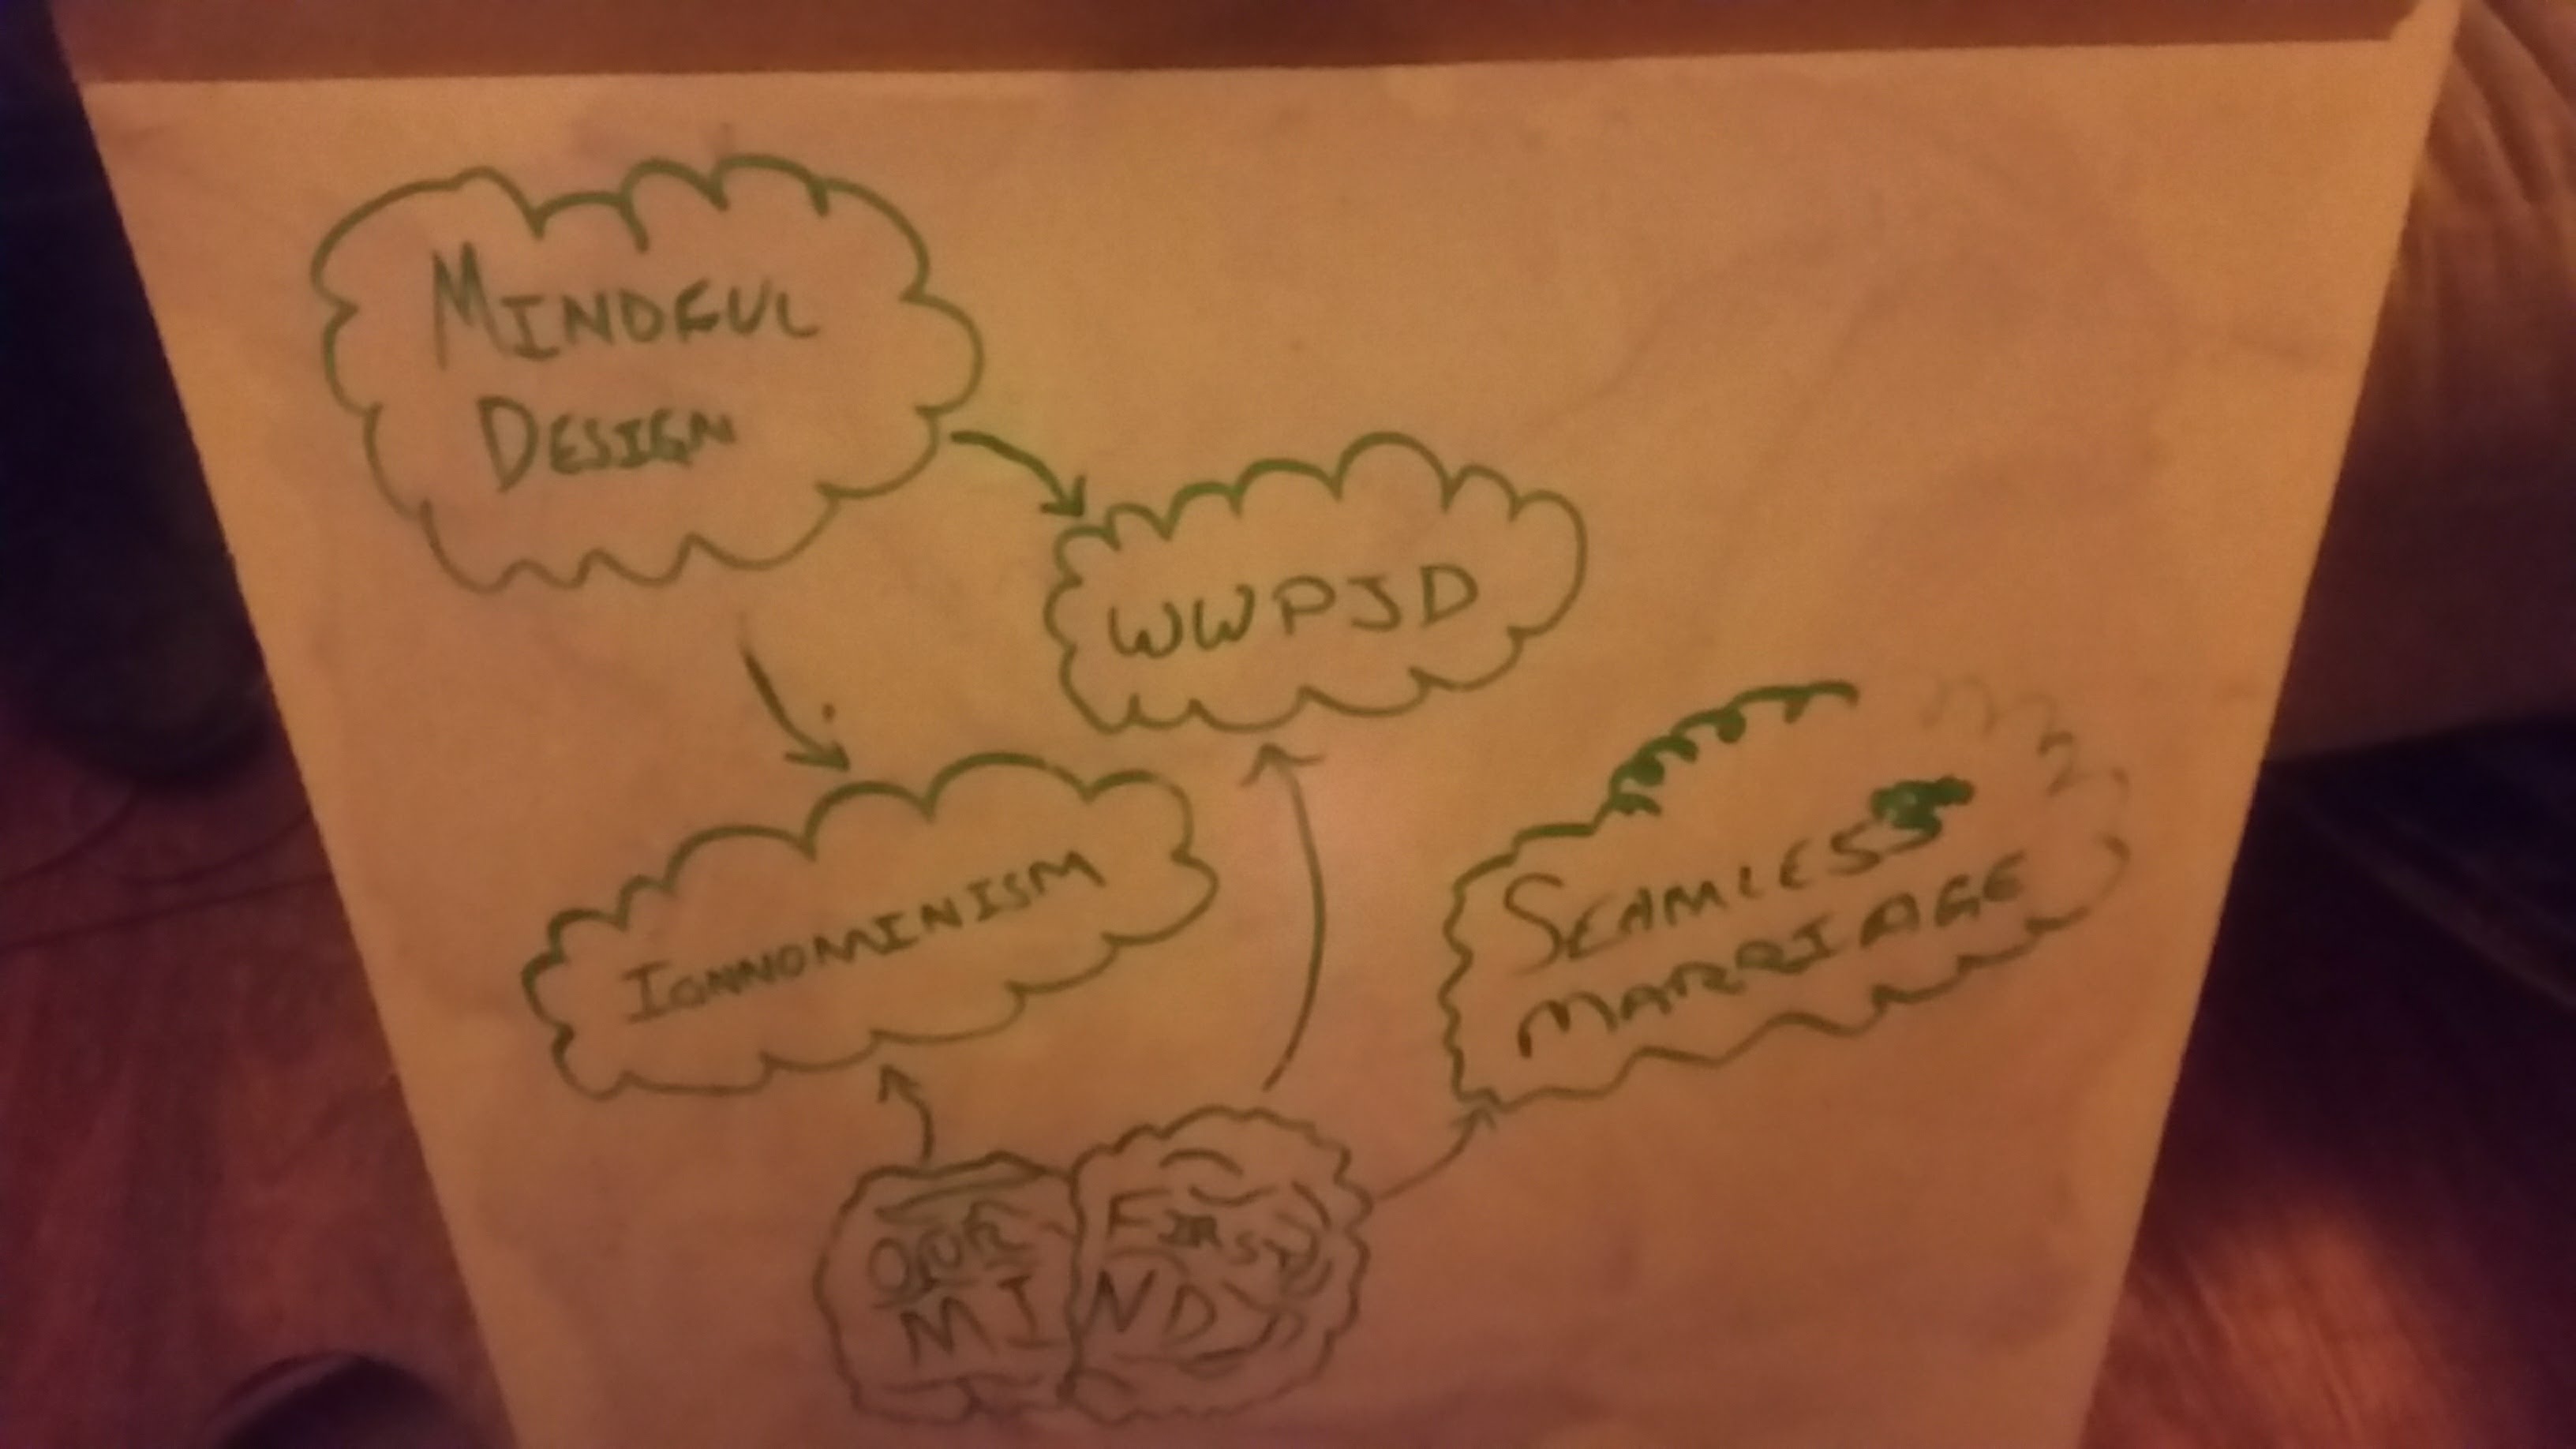 MINDFUL
DESIGN
WWPJD
IGNNOMINISM
SEAMLESS
MARRIAGE
OUR FIRST
MIND